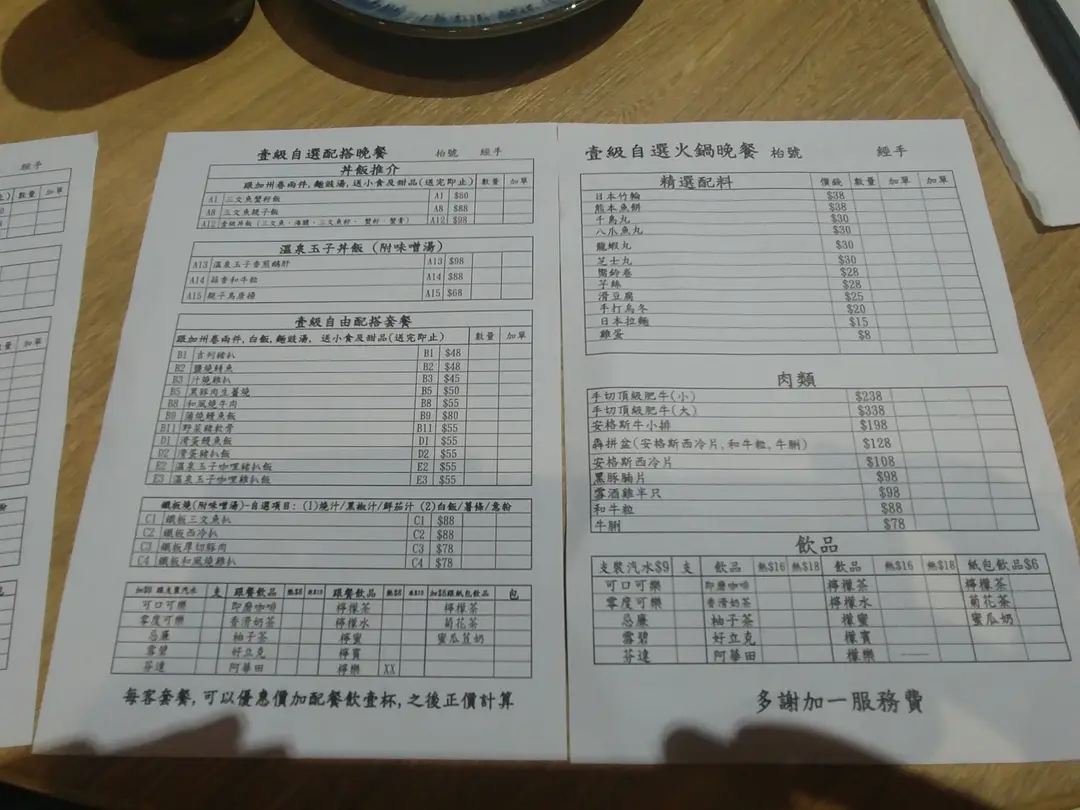 經手
數量 加單
壹級自選配搭晚餐 枱號 經手
丼飯推介
跟加州卷兩件, 麵豉湯, 送小食及甜品(送完即止) 數量 加單
A1 三文魚蟹籽飯 A1 $60
A8 三文魚親子飯 A8 $88
A12 壹級丼飯 A12 $98
溫泉玉子丼飯 (附味噌湯)
A13 溫泉玉子香煎鵝肝 A13 $98
A14 蒜香和牛粒 A14 $88
A15 親子鳥唐揚 A15 $68
壹級自由配搭套餐
跟加州卷兩件, 白飯, 麵豉湯, 送小食及甜品(送完即止) 數量 加單
B1 吉列豬扒 B1 $48
B2 鹽燒鯖魚 B2 $48
B3 汁燒雞扒 B3 $45
B5 黑豚肉生薑燒 B5 $50
B8 和風燒牛肉 B8 $55
B9 蒲燒鰻魚飯 B9 $80
B11 野菜豬軟骨 B11 $55
D1 滑蛋鰻魚飯 D1 $55
D2 滑蛋豬扒飯 D2 $55
E2 溫泉玉子咖哩豬扒飯 E2 $55
E3 溫泉玉子咖哩雞扒飯 E3 $55
鐵板燒(附味噌湯)-自選項目: (1)燒汁/黑椒汁/鮮茄汁 (2)白飯/薯條/意粉
C1 鐵板三文魚扒 C1 $88
C2 鐵板西冷扒 C2 $88
C3 鐵板厚切豚肉 C3 $78
C4 鐵板和風燒雞扒 C4 $78
支 跟餐飲品 跟餐飲品 加$6跟紙包飲品 包
可口可樂 即磨咖啡 檸檬茶 檸檬茶
零度可樂 香滑奶茶 檸檬水 菊花茶
忌廉 柚子茶 檸蜜 蜜瓜荳奶
雪碧 好立克 檸賓
芬達 阿華田 檸樂 XX
每客套餐, 可以優惠價加配餐飲壹杯, 之後正價計算
壹級自選火鍋晚餐 枱號 經手
精選配料 價錢 數量 加單 加單
日本竹輪 $38
熊本魚餅 $38
千鳥丸 $30
八爪魚丸 $30
龍蝦丸 $30
芝士丸 $30
響鈴卷 $28
芋絲 $28
滑豆腐 $25
手打烏冬 $20
日本拉麵 $15
雞蛋 $8
肉類
手切頂級肥牛(小) $238
手切頂級肥牛(大) $338
安格斯牛小排 $198
犇拼盆(安格斯西冷片, 和牛粒, 牛脷) $128
安格斯西冷片 $108
黑豚腩片 $98
露酒雞半只 $98
和牛粒 $88
牛脷 $78
飲品
支裝汽水$9 支 飲品 熱$16 凍$18 飲品 熱$16 凍$18 紙包飲品$6
可口可樂 即磨咖啡 檸檬茶 檸檬茶
零度可樂 香滑奶茶 檸檬水 菊花茶
忌廉 柚子茶 檸蜜 蜜瓜奶
雪碧 好立克 檸賓
芬達 阿華田 檸樂
多謝加一服務費